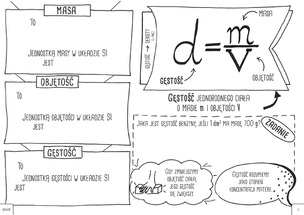 MASA
TO
JEDNOSTKĄ MASY W UKŁADZIE SI
JEST
OBJĘTOŚĆ
TO
JEDNOSTKĄ OBJĘTOŚCI W UKŁADZIE SI
JEST
GĘSTOŚĆ
TO
JEDNOSTKĄ GĘSTOŚCI W UKŁADZIE SI
JEST
GĘSTOŚĆ DENSITY
MASA
d = m
V
GĘSTOŚĆ
OBJĘTOŚĆ
GĘSTOŚĆ JEDNORODNEGO CIAŁA
O MASIE m I OBJĘTOŚCI V
ZADANIE
JAKA JEST GĘSTOŚĆ BENZYNY, JEŚLI 1 dm³ MA MASĘ 700 g?
GDY ZMNIEJSZYMY
OBJĘTOŚĆ CIAŁA,
JEGO GĘSTOŚĆ
SIĘ ZWIĘKSZY
GĘSTOŚĆ ROZUMIEMY
JAKO STOPIEŃ
KONCENTRACJI MATERII